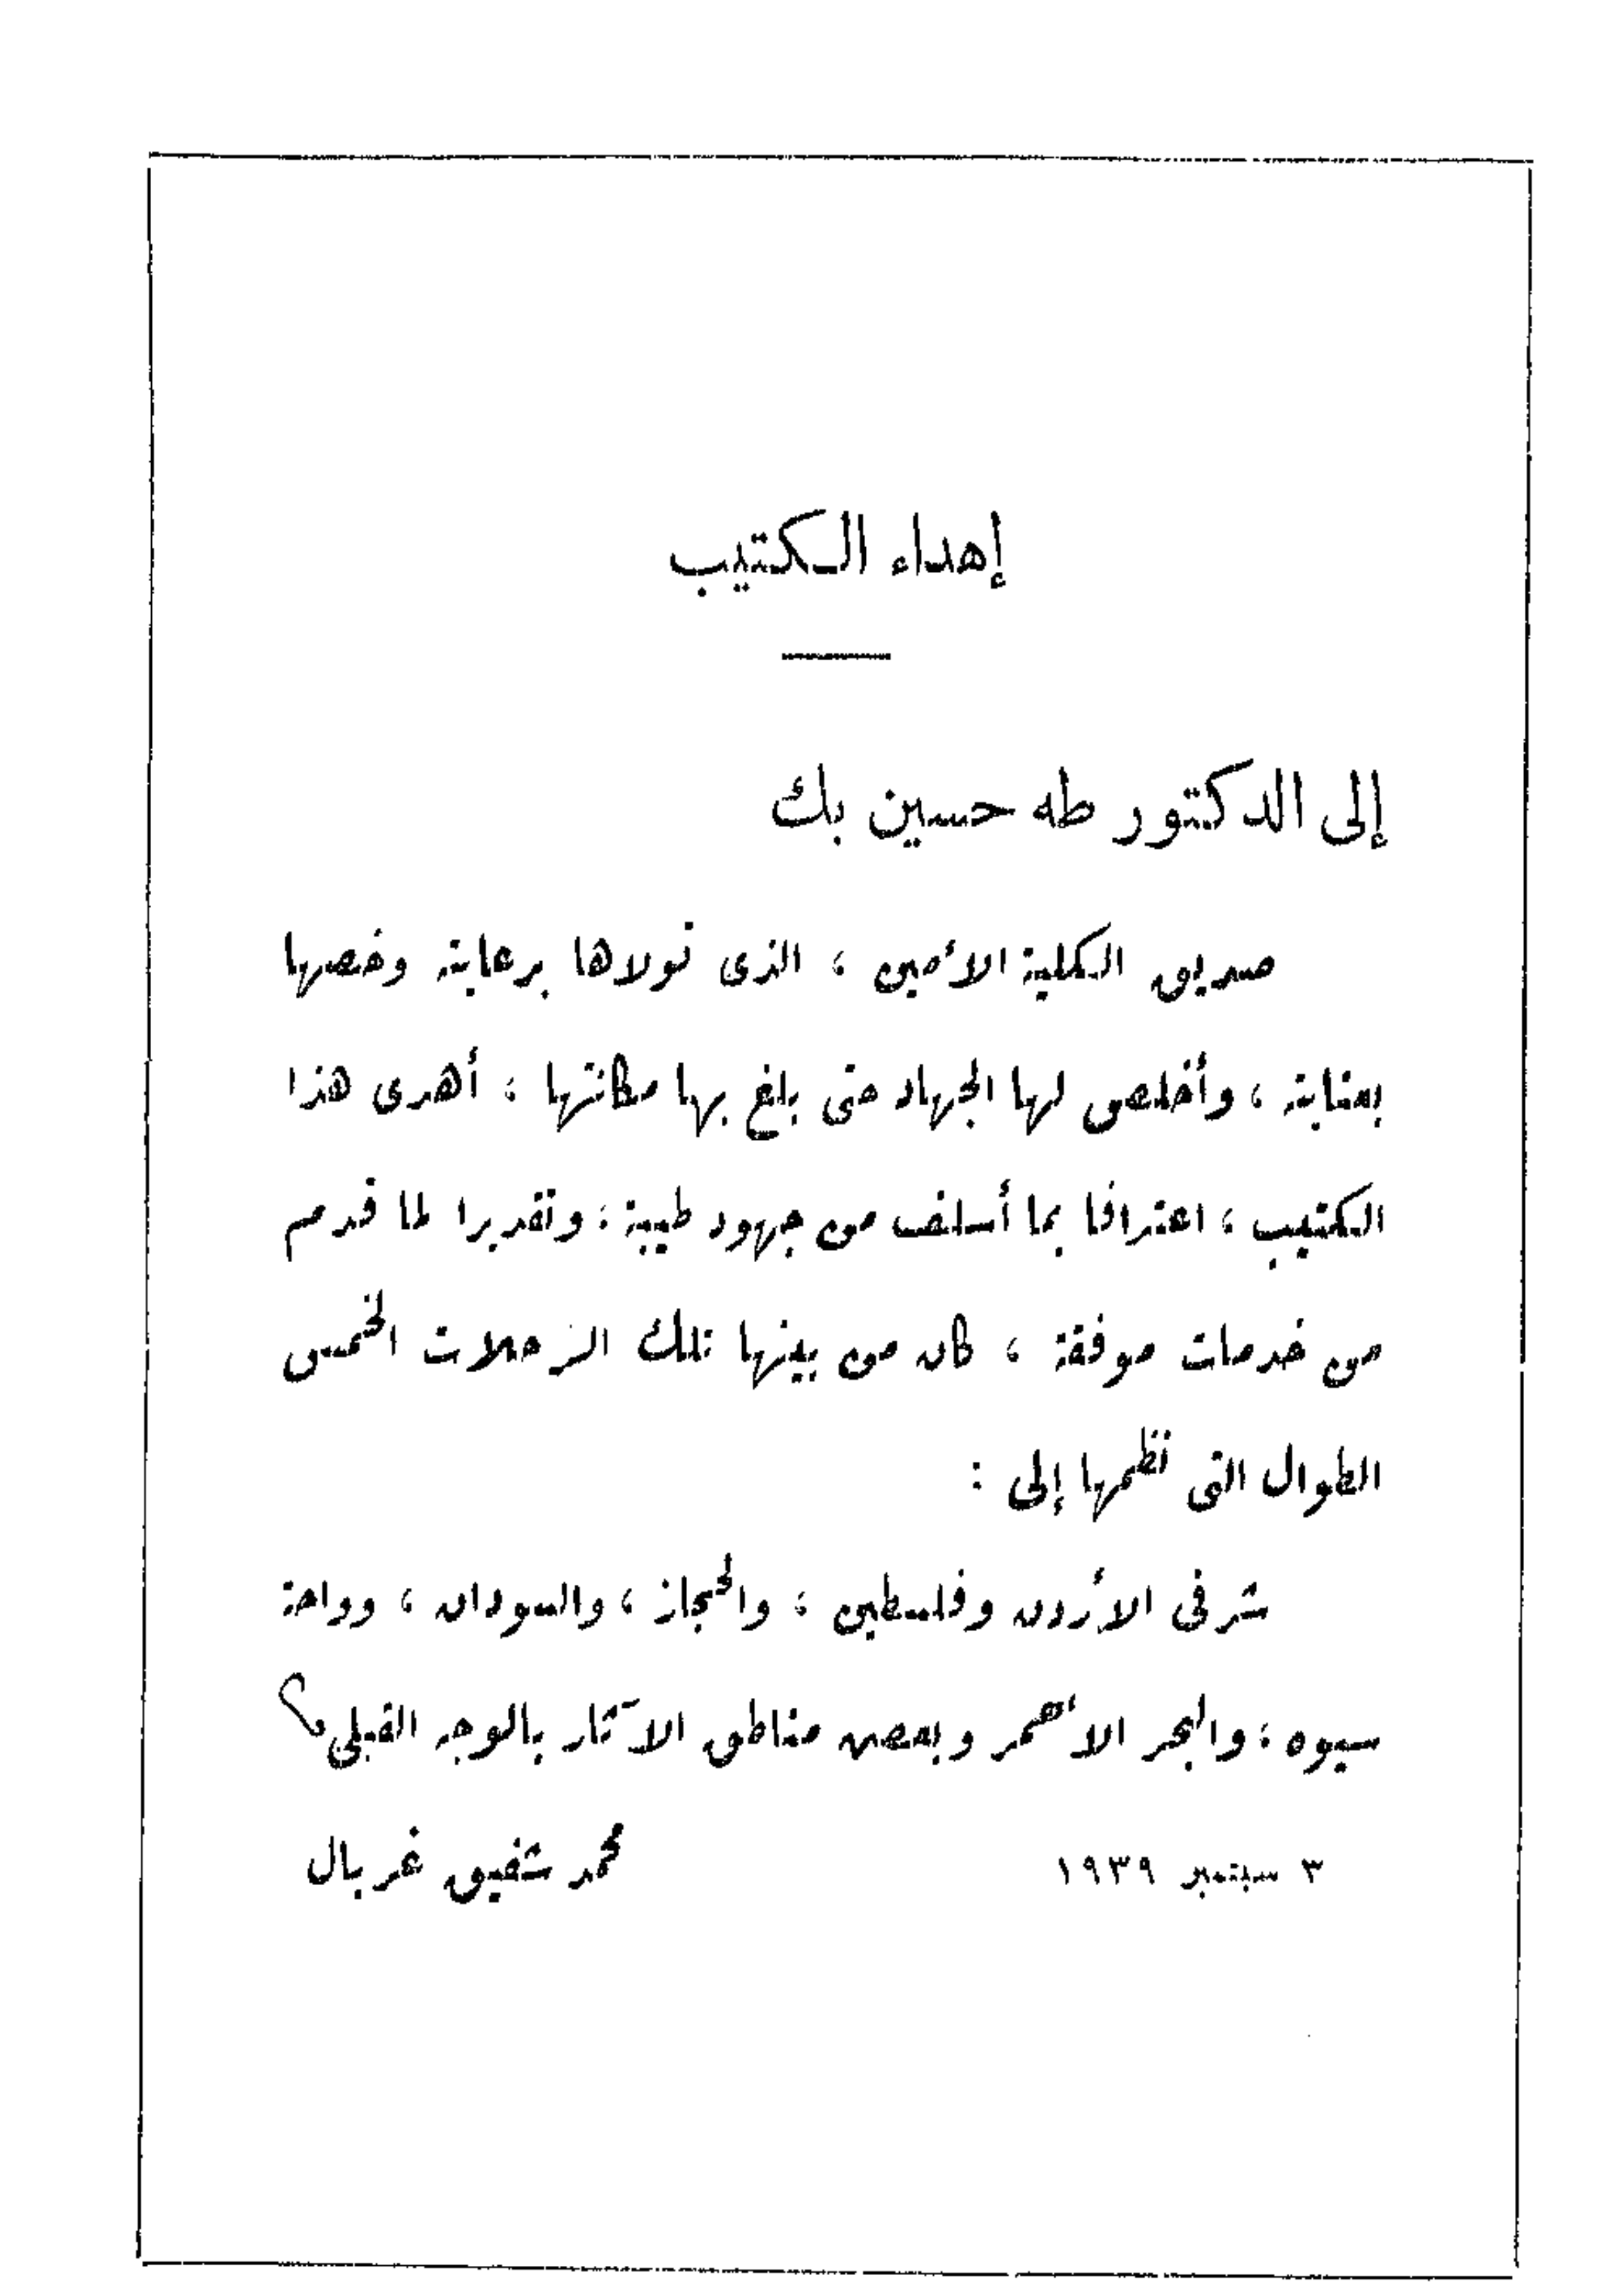 إهداء الكتيب
إلى الدكتور طه حسين بك
صديق الكلية الأمين ، الذى تولاها برعايته وخصها
بعنايته ، وأخلص لها الجهاد حتى بلغ بها مكانتها ، أهدى هذا
الكتيب ، اعترافا بما أسلف من جهود طيبة ، وتقديرا لما قدم
من خدمات موفقة ، كان من بينها تلك الرحلات الخمس
الطوال التى نظمها إلى :
شرقى الأردن وفلسطين ، والحجاز ، والسودان ، وواحة
سيوه ، والبحر الأحمر وبعض مناطق الآثار بالوجه القبلى
٣ سبتمبر ١٩٣٩ محمد شفيق غربال